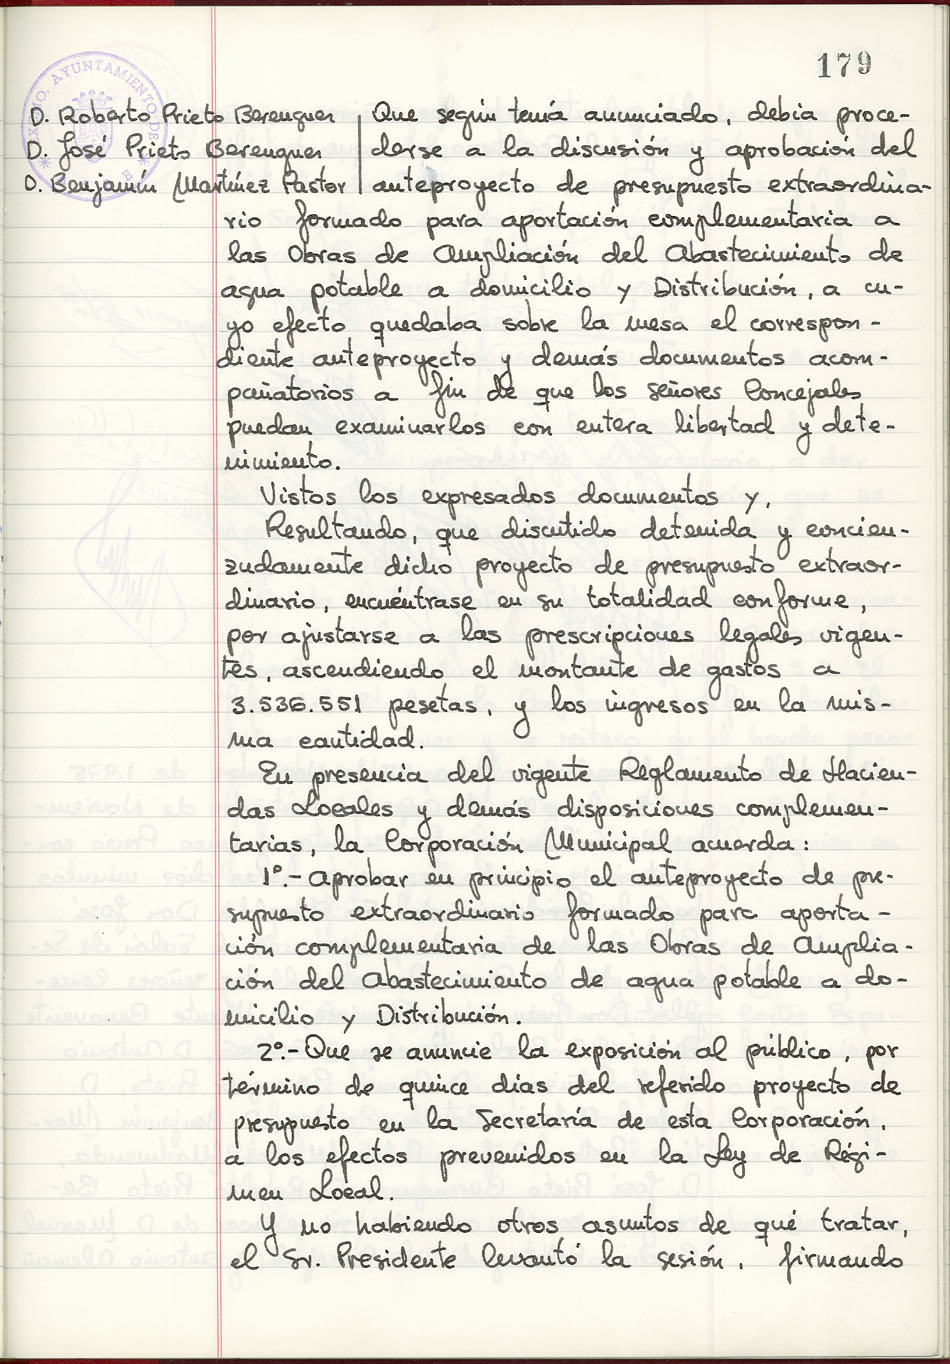 179
EXCMO. AYUNTAMIENTO DE
D. Roberto Prieto Berenguer
D. José Prieto Berenguer
D. Benjamín Martínez Pastor
Que según tenía anunciado, debia proce-
derse a la discusión y aprobación del
anteproyecto de presupuesto extraordina-
rio formado para aportación complementaria a
las Obras de Ampliación del Abastecimiento de
agua potable a domicilio y Distribución, a cu-
yo efecto quedaba sobre la mesa el correspon-
diente anteproyecto y demás documentos acom-
pañatorios a fin de que los señores Concejales
puedan examinarlos con entera libertad y dete-
nimiento.
Vistos los expresados documentos y,
Resultando, que discutido detenida y concien-
zudamente dicho proyecto de presupuesto extraor-
dinario, encuéntrase en su totalidad conforme,
por ajustarse a las prescripciones legales vigen-
tes, ascendiendo el montante de gastos a
3.536.551 pesetas, y los ingresos en la mis-
ma cantidad.
En presencia del vigente Reglamento de Hacien-
das Locales y demás disposiciones complemen-
tarias, la Corporación Municipal acuerda:
1º.- Aprobar en principio el anteproyecto de pre-
supuesto extraordinario formado para aporta-
ción complementaria de las Obras de Amplia-
ción del Abastecimiento de agua potable a do-
micilio y Distribución.
2º.- Que se anuncie la exposición al público, por
término de quince días del referido proyecto de
presupuesto en la Secretaría de esta Corporación,
a los efectos prevenidos en la Ley de Régi-
men Local.
Y no habiendo otros asuntos de qué tratar,
el Sr. Presidente levantó la sesión, firmando